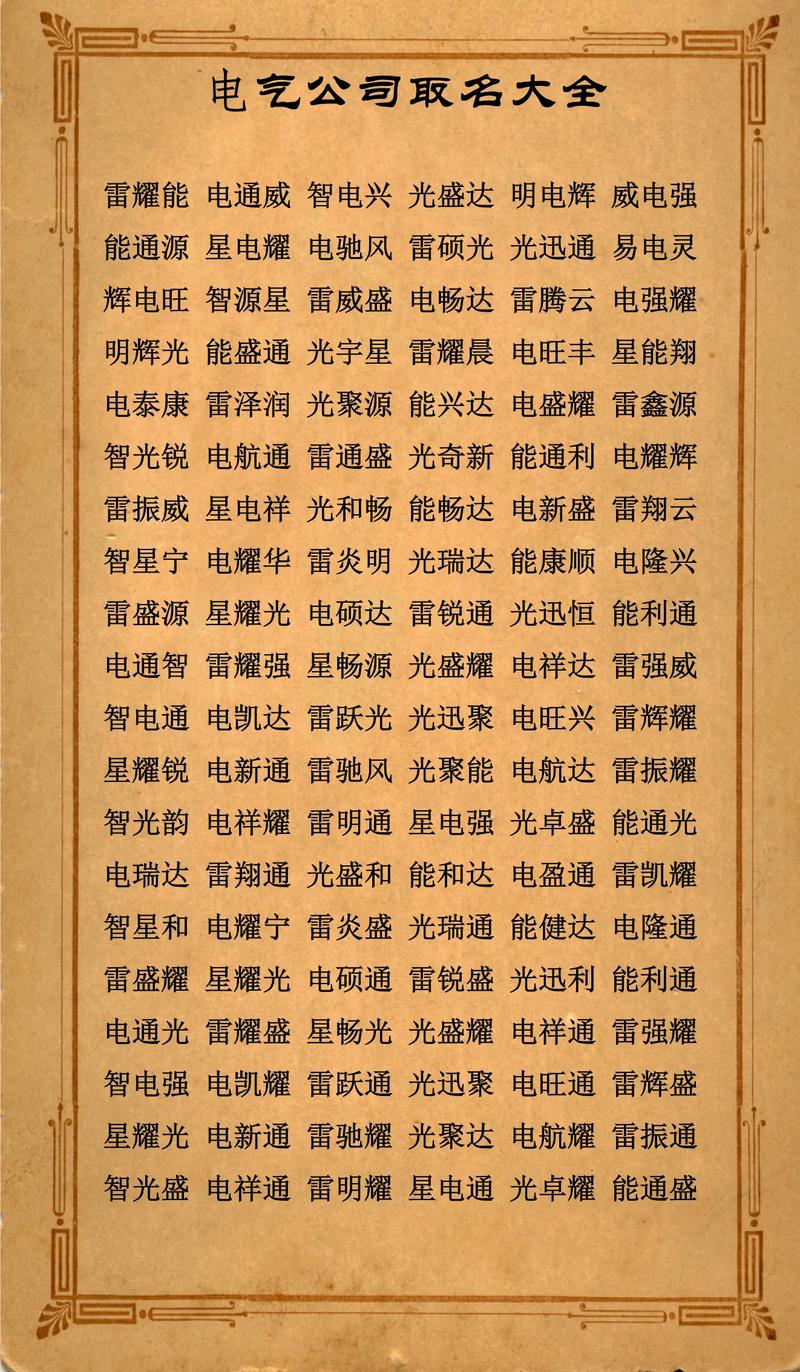 电气公司取名大全
雷耀能 电通威 智电兴 光盛达 明电辉 威电强
能通源 星电耀 电驰风 雷硕光 光迅通 易电灵
辉电旺 智源星 雷威盛 电畅达 雷腾云 电强耀
明辉光 能盛通 光宇星 雷耀晨 电旺丰 星能翔
电泰康 雷泽润 光聚源 能兴达 电盛耀 雷鑫源
智光锐 电航通 雷通盛 光奇新 能通利 电耀辉
雷振威 星电祥 光和畅 能畅达 电新盛 雷翔云
智星宁 电耀华 雷炎明 光瑞达 能康顺 电隆兴
雷盛源 星耀光 电硕达 雷锐通 光迅恒 能利通
电通智 雷耀强 星畅源 光盛耀 电祥达 雷强威
智电通 电凯达 雷跃光 光迅聚 电旺兴 雷辉耀
星耀锐 电新通 雷驰风 光聚能 电航达 雷振耀
智光韵 电祥耀 雷明通 星电强 光卓盛 能通光
电瑞达 雷翔通 光盛和 能和达 电盈通 雷凯耀
智星和 电耀宁 雷炎盛 光瑞通 能健达 电隆通
雷盛耀 星耀光 电硕通 雷锐盛 光迅利 能利通
电通光 雷耀盛 星畅光 光盛耀 电祥通 雷强耀
智电强 电凯耀 雷跃通 光迅聚 电旺通 雷辉盛
星耀光 电新通 雷驰耀 光聚达 电航耀 雷振通
智光盛 电祥通 雷明耀 星电通 光卓耀 能通盛